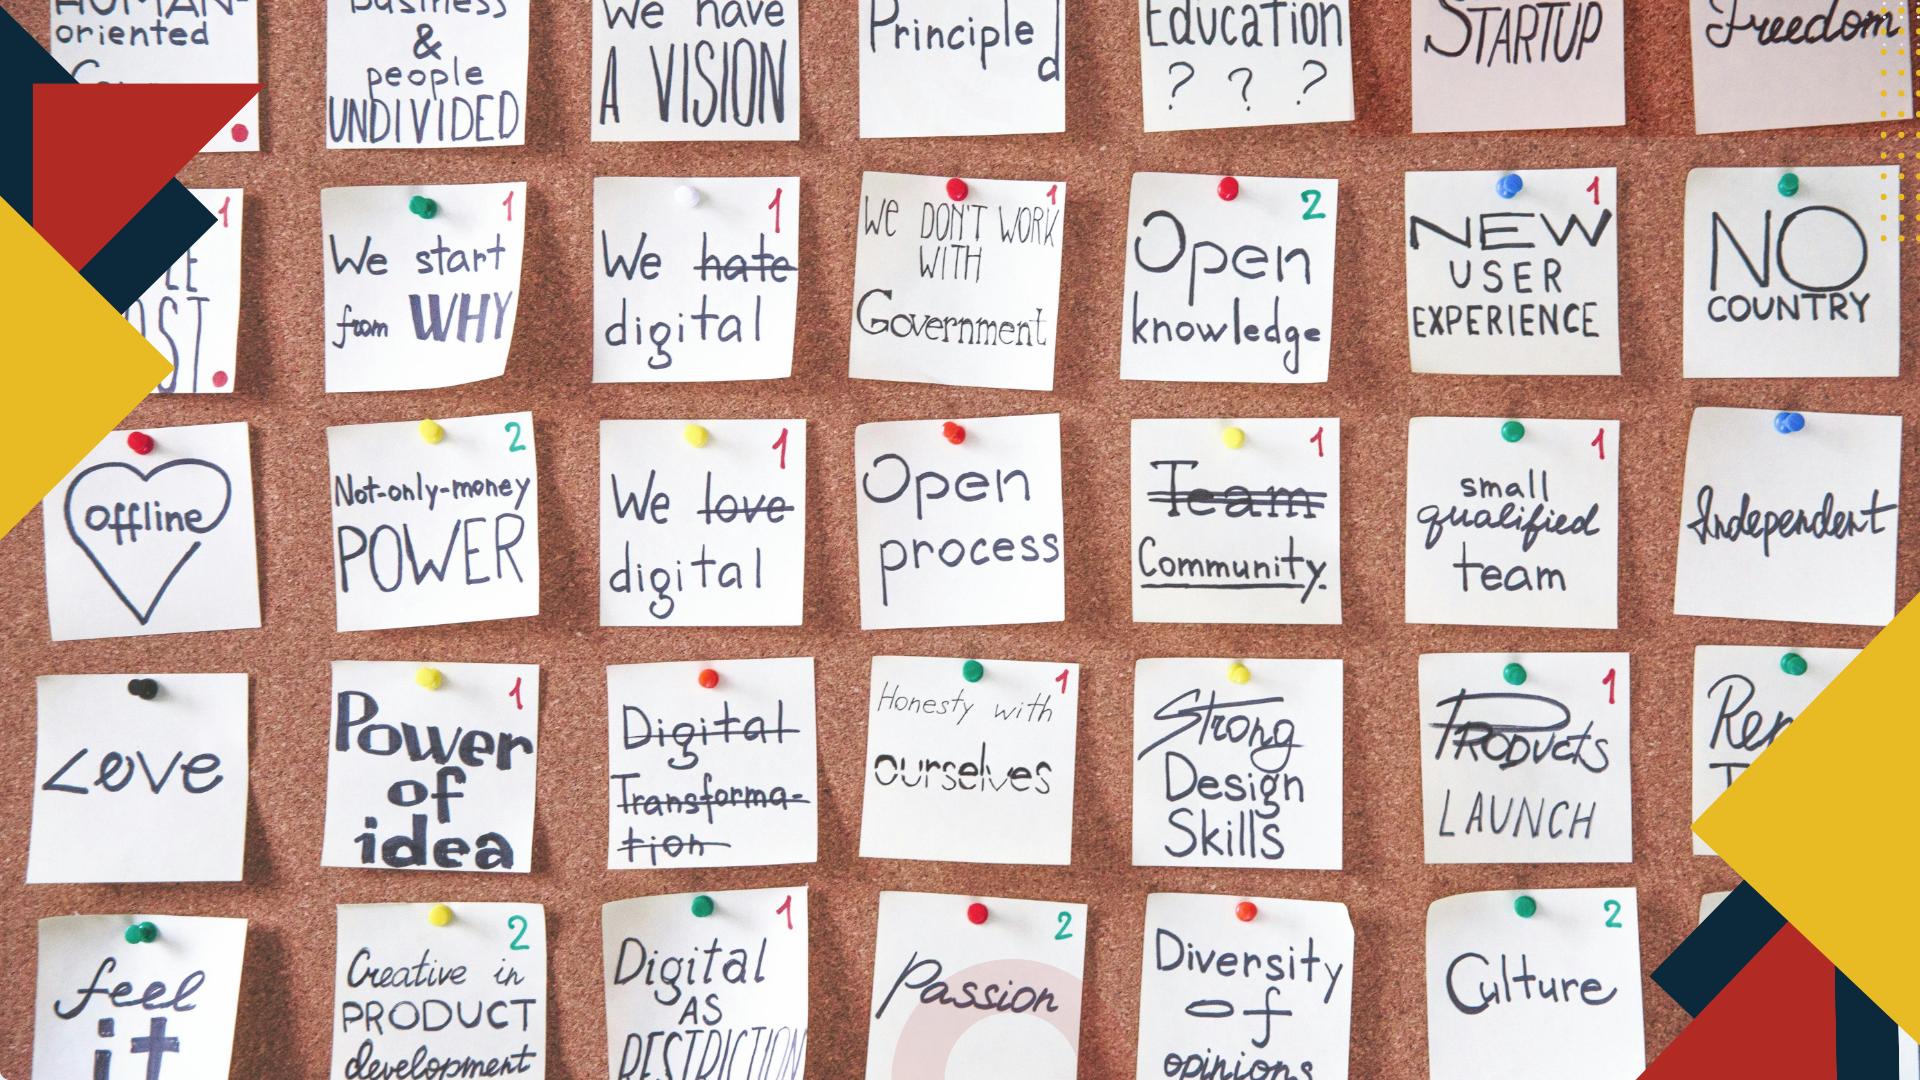 HUMAN-
oriented
business
&
people
UNDIVIDED
We have
A VISION
Principled
Education
? ? ?
STARTUP
Freedom
1
1
We start
from WHY
1
We hate
digital
1
We DON'T WORK
WITH
Government
2
Open
knowledge
1
NEW
USER
EXPERIENCE
NO
COUNTRY
offline
2
Not-only-money
POWER
1
We love
digital
Open
process
1
Team
Community.
1
small
qualified
team
Independent
Love
1
Power
of
idea
Digital
Transforma-
tion
1
Honesty with
ourselves
Strong
Design
Skills
1
PRODUCTS
LAUNCH
feel
it
2
Creative in
PRODUCT
development
1
Digital
AS
RESTRICTION
2
Passion
Diversity
of
opinions
2
Culture